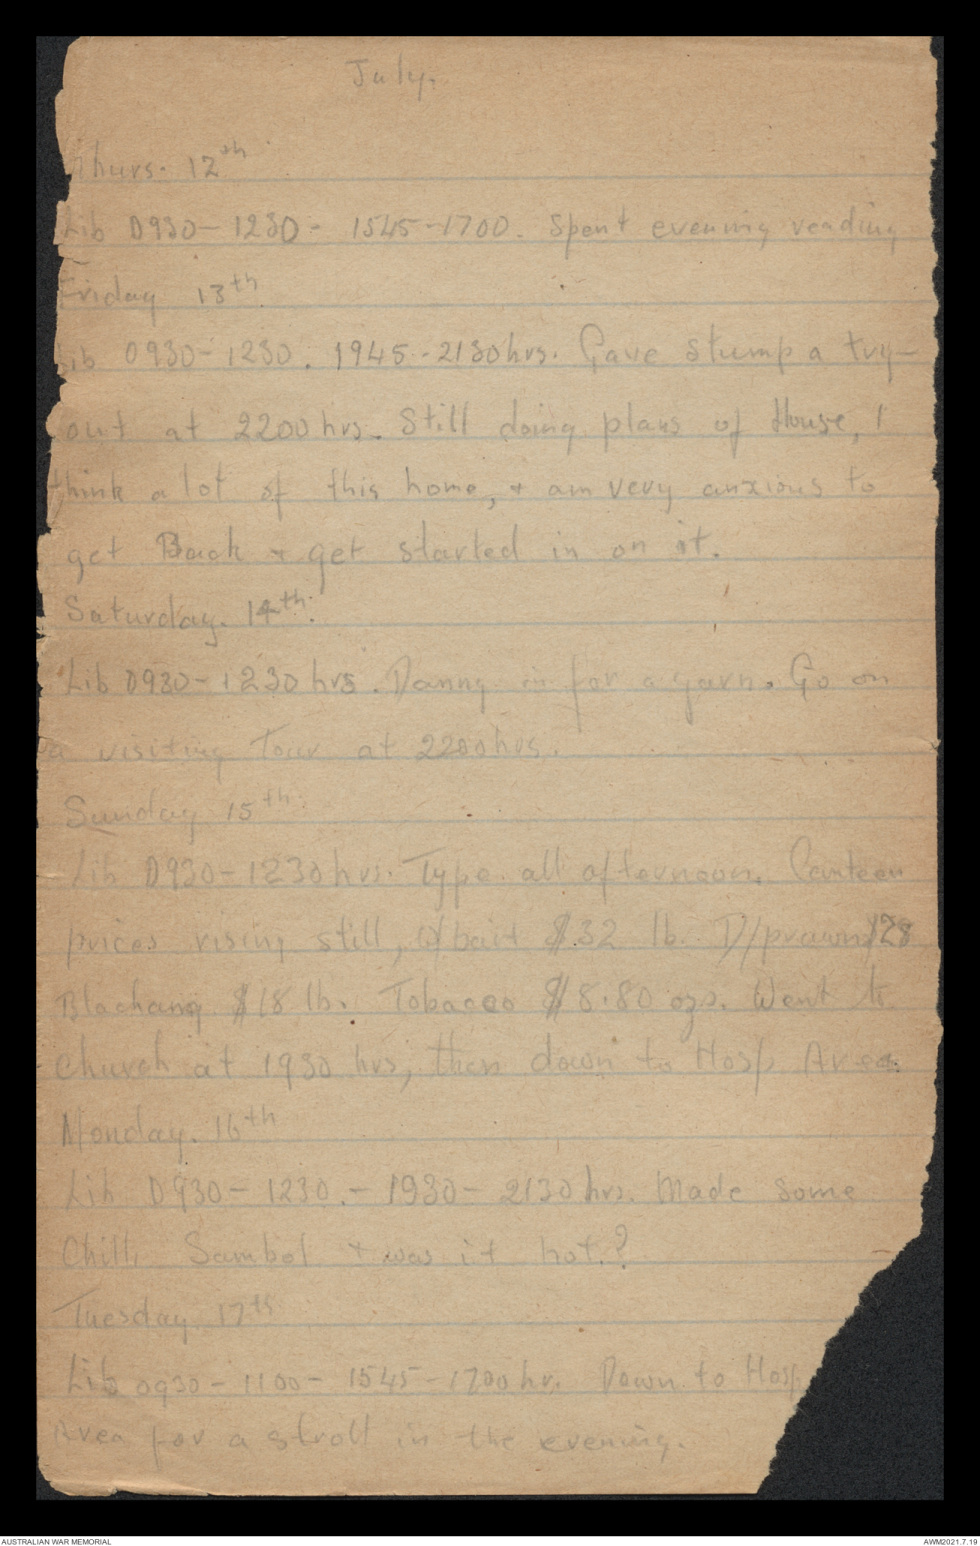 July.
Thurs. 12th
Lib 0930 - 1230 - 1545 - 1700. Spent evening reading
Friday 13th
Lib 0930 - 1230. 1945 - 2130 hrs. Gave stump a try-
out at 2200 hrs. Still doing plans of House, I
think a lot of this home, & am very anxious to
get Back & get started in on it.
Saturday. 14th.
Lib 0930 - 1230 hrs. Danny in for a yarn. Go on
a visiting Tour at 2200 hrs.
Sunday 15th.
Lib 0930 - 1230 hrs. Type all afternoon. Canteen
prices rising still, W/bait $32 lb. D/prawns $28
Blachang $18 lb. Tobacco $8.80 ozs. Went to
Church at 1930 hrs, then down to Hosp Area.
Monday. 16th
Lib 0930 - 1230. - 1930 - 2130 hrs. Made some
Chilli Sambol & was it hot.?
Tuesday. 17th
Lib 0930 - 1100 - 1545 - 1700 hr. Down to Hosp
Area for a stroll in the evening.
AUSTRALIAN WAR MEMORIAL
AWM2021.7.19